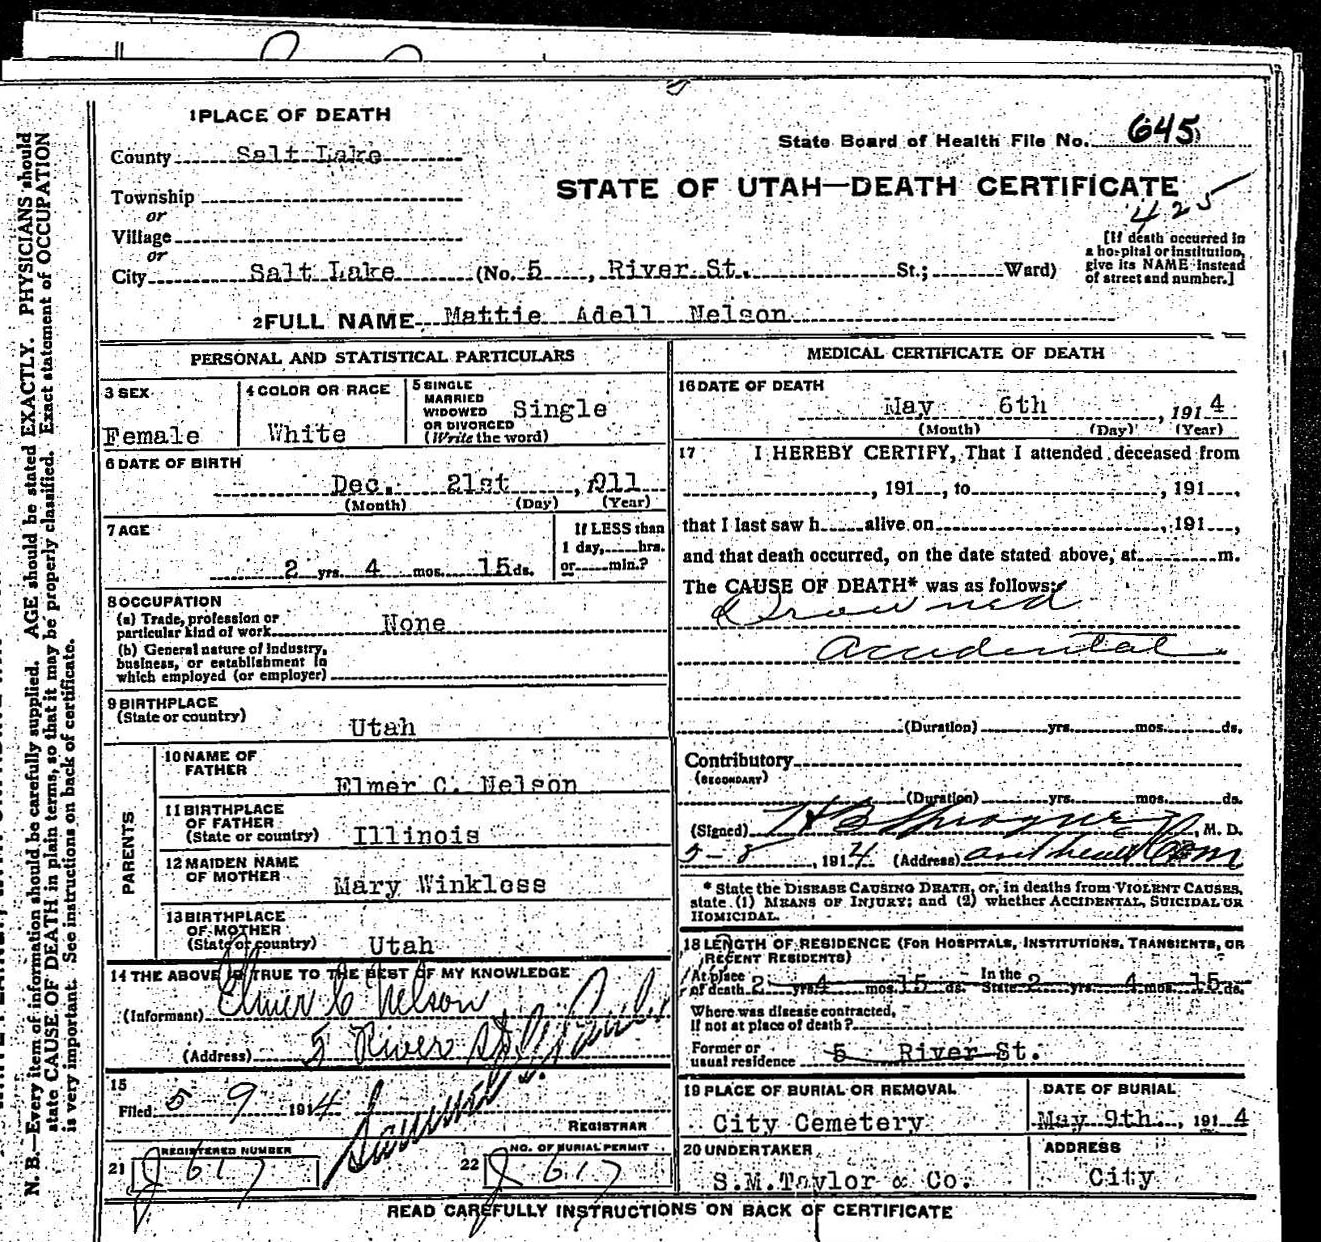 1 PLACE OF DEATH
County Salt Lake
State Board of Health File No. 645
STATE OF UTAH—DEATH CERTIFICATE
425
Township
or
Village
or
City Salt Lake (No. 5, River St. St.; Ward)
[If death occurred in a hospital or institution, give its NAME instead of street and number.]
2 FULL NAME Mattie Adell Nelson
PERSONAL AND STATISTICAL PARTICULARS
3 SEX
Female
4 COLOR OR RACE
White
5 SINGLE
MARRIED
WIDOWED
OR DIVORCED
(Write the word)
Single
6 DATE OF BIRTH
Dec. 21st, 1911
(Month) (Day) (Year)
7 AGE
2 yrs. 4 mos. 15 ds.
If LESS than
1 day, hrs.
or min.?
8 OCCUPATION
(a) Trade, profession or
particular kind of work None
(b) General nature of industry,
business, or establishment in
which employed (or employer)
9 BIRTHPLACE
(State or country)
Utah
PARENTS
10 NAME OF
FATHER
Elmer C. Nelson
11 BIRTHPLACE
OF FATHER
(State or country) Illinois
12 MAIDEN NAME
OF MOTHER
Mary Winkless
13 BIRTHPLACE
OF MOTHER
(State or country) Utah
14 THE ABOVE IS TRUE TO THE BEST OF MY KNOWLEDGE
(Informant) Elmer C Nelson
(Address) 5 River St
15
Filed 5-9 1914
Samuel G. Paul
REGISTRAR
21 REGISTERED NUMBER
J 617
22 NO. OF BURIAL PERMIT
J 617
MEDICAL CERTIFICATE OF DEATH
16 DATE OF DEATH
May 6th, 1914
(Month) (Day) (Year)
17 I HEREBY CERTIFY, That I attended deceased from
, 191 , to , 191 ,
that I last saw h alive on , 191 ,
and that death occurred, on the date stated above, at m.
The CAUSE OF DEATH* was as follows:
Drowned
Accidental
(Duration) yrs. mos. ds.
Contributory
(SECONDARY)
(Duration) yrs. mos. ds.
(Signed) H B Sprague, M. D.
5-8, 1914 (Address)
* State the DISEASE CAUSING DEATH, or, in deaths from VIOLENT CAUSES,
state (1) MEANS OF INJURY; and (2) whether ACCIDENTAL, SUICIDAL OR
HOMICIDAL.
18 LENGTH OF RESIDENCE (FOR HOSPITALS, INSTITUTIONS, TRANSIENTS, OR
RECENT RESIDENTS)
At place
of death 2 yrs. 4 mos. 15 ds. In the State 2 yrs. 4 mos. 15 ds.
Where was disease contracted,
If not at place of death?
Former or
usual residence 5 River St.
19 PLACE OF BURIAL OR REMOVAL
City Cemetery
DATE OF BURIAL
May 9th., 1914
20 UNDERTAKER
S.M.Taylor & Co.
ADDRESS
City
READ CAREFULLY INSTRUCTIONS ON BACK OF CERTIFICATE
N. B.—Every item of information should be carefully supplied. AGE should be stated EXACTLY. PHYSICIANS should
state CAUSE OF DEATH in plain terms, so that it may be properly classified. Exact statement of OCCUPATION
is very important. See instructions on back of certificate.